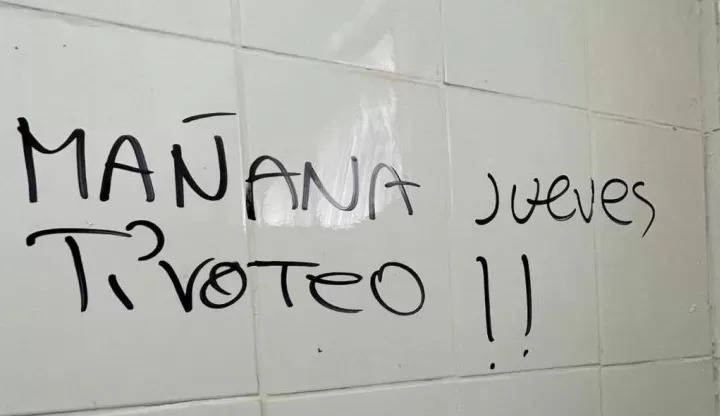 MAÑANA jueves
Ti voteo !!